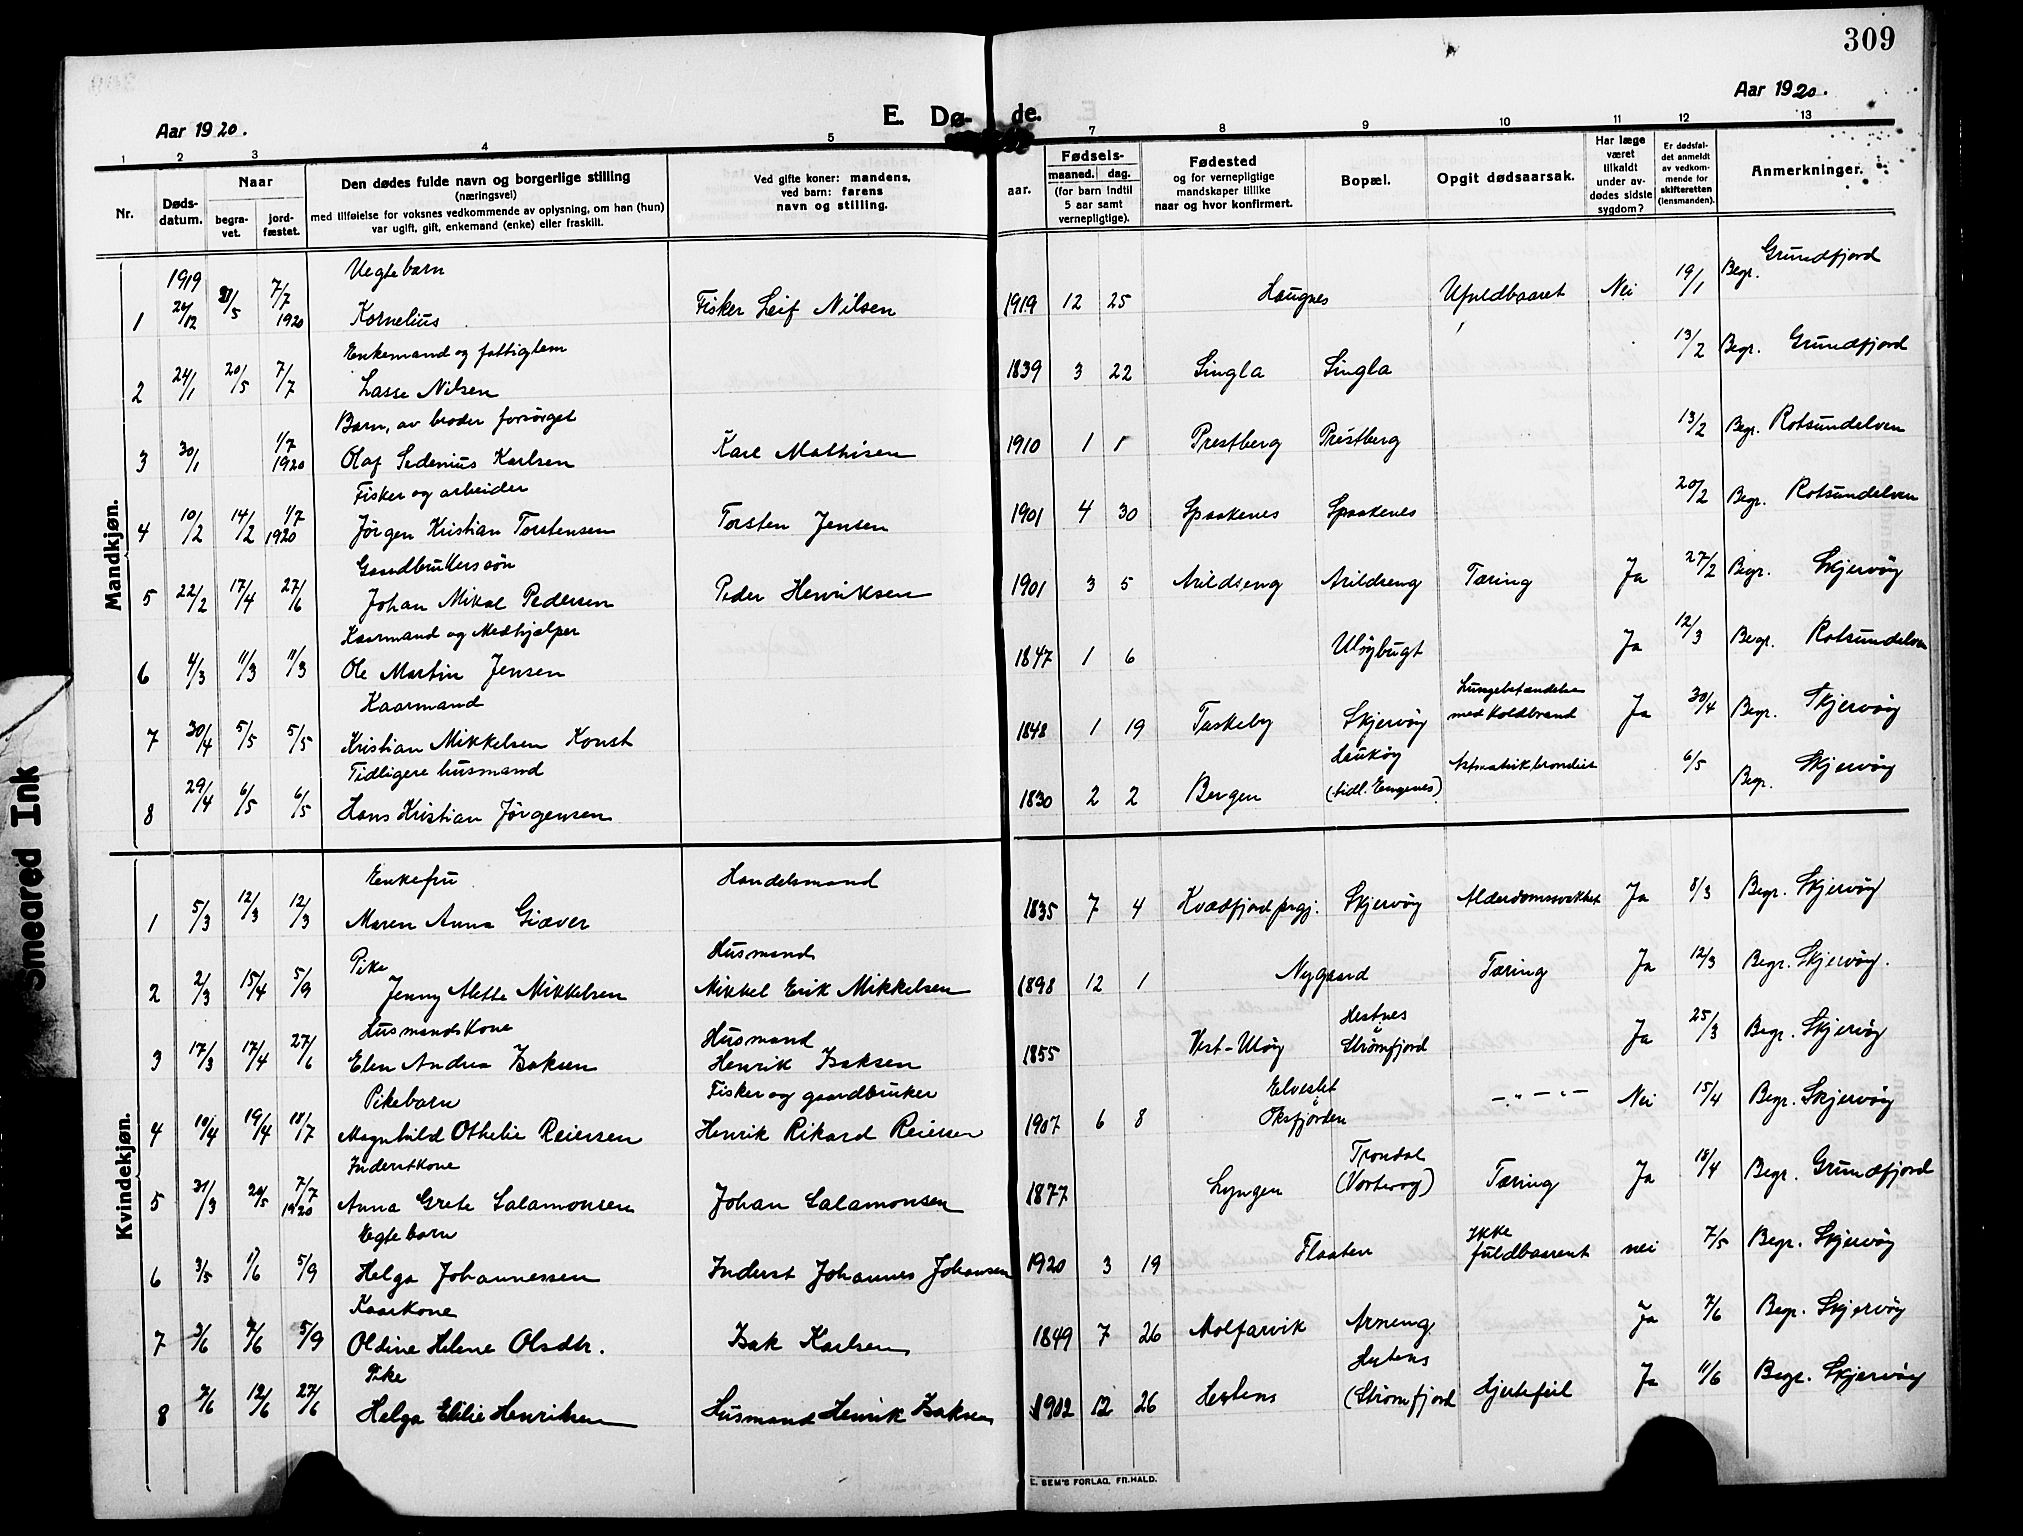 309
Aar 1920.
Aar 1920.
E. Dø- de.
1 2 3 4 5 7 8 9 10 11 12 13
Nr.
Døds-
datum.
Naar
begra-
vet.
jord-
fæstet.
Den dødes fulde navn og borgerlige stilling
(næringsvei)
med tilføielse for voksnes vedkommende av oplysning, om han (hun)
var ugift, gift, enkemand (enke) eller fraskilt.
Ved gifte koner: mandens,
ved barn: farens
navn og stilling.
aar.
Fødsels-
maaned. dag.
(for barn indtil
5 aar samt
vernepligtige).
Fødested
og for vernepligtige
mandskaper tillike
naar og hvor konfirmert.
Bopæl.
Opgit dødsaarsak.
Har læge
været
tilkaldt
under av-
dødes sidste
sygdom?
Er dødsfal-
det anmeldt
av vedkom-
mende for
skifteretten
(lensmanden).
Anmerkninger.
Mandkjøn.
1919 Uegte barn
1 26/12 /5 7/7 1920 Kornelius Fisker Leif Nilsen 1919 12 25 Haugnes Ufuldbaaret Nei 19/1 Begr. Grundfjord
Enkemand og fattiglem
2 24/1 20/5 7/7 Lasse Nilsen 1839 3 22 Singla Singla 13/2 Begr. Grundfjord
Barn, av broder forsørget
3 30/1 1/7 1920 Olaf Sedenius Karlsen Karl Mathisen 1910 1 1 Prestberg Prestberg 13/2 Begr. Rotsundelven
Fisker og arbeider
4 10/2 14/2 1/7 1920 Jørgen Kristian Torstensen Torsten Jensen 1901 4 30 Spaakenes Spaakenes 20/2 Begr. Rotsundelven
Gaardbrukersøn
5 22/2 17/4 27/6 Johan Mikal Pedersen Peder Henriksen 1901 3 5 Arildseng Arildseng Tæring Ja 27/2 Begr. Skjervøy
Kaarmand og Medhjælper
6 4/3 11/3 11/3 Ole Martin Jensen 1847 1 6 Uløybugt Ja 12/3 Begr. Rotsundelven
Kaarmand
7 30/4 5/5 5/5 Kristian Mikkelsen Konst 1848 1 19 Taskeby Skjervøy Lungebetændelse med Koldbrand Ja 30/4 Begr. Skjervøy
Tidligere husmand
8 29/4 6/5 6/5 Hans Kristian Jørgensen 1830 2 2 Bergen Haukøy (tidl. Engenes) 6/5 Begr. Skjervøy
Kvindekjøn.
Enkefru Handelsmand
1 5/3 12/3 12/3 Maren Anna Giæver 1835 7 4 Kvædfjord prgj. Skjervøy Alderdomssvakhet Ja 8/3 Begr. Skjervøy
Pike Husmand
2 2/3 15/4 5/9 Jenny Alette Mikkelsen Mikkel Erik Mikkelsen 1898 12 1 Nygaard Tæring Ja 12/3 Begr. Skjervøy.
Husmandskone Husmand
3 17/3 17/4 27/6 Elen Andrea Isaksen Henrik Isaksen 1855 Vest-Uløy Hestnes i Strømfjord Ja 25/3 Begr. Skjervøy
Pikebarn Fisker og gaardbruker
4 10/4 19/4 18/7 Magnhild Othelie Reiersen Henrik Rikard Reiersen 1907 6 8 Elveslet i Oksfjorden -"-"- Nei 15/4 Begr. Skjervøy
Inderstkone
5 31/3 20/5 7/7 1920 Anna Grete Salamonsen Johan Salamonsen 1877 Lyngen Trondal (Vorterøy) Tæring Ja 18/4 Begr. Grundfjord
Egte barn
6 3/5 1/6 5/9 Helga Johannessen Inderst Johannes Johansen 1920 3 19 Flaaten Ikke fuldbaarent nei 7/5 Begr. Skjervøy
Kaarkone
7 3/6 7/6 5/9 Oldine Helene Olsdtr. Isak Karlsen 1849 7 26 Molfarvik Arneng Ja 7/6 Begr. Skjervøy
Pike
8 7/6 12/6 27/6 Helga Elilie Henriksen Husmand Henrik Isaksen 1902 12 26 Hestens Hestens (Strømfjord Hjertefeil Ja 11/6 Begr. Skjervøy
E. SEM'S FORLAG, FR.HALD.
Smeared Ink